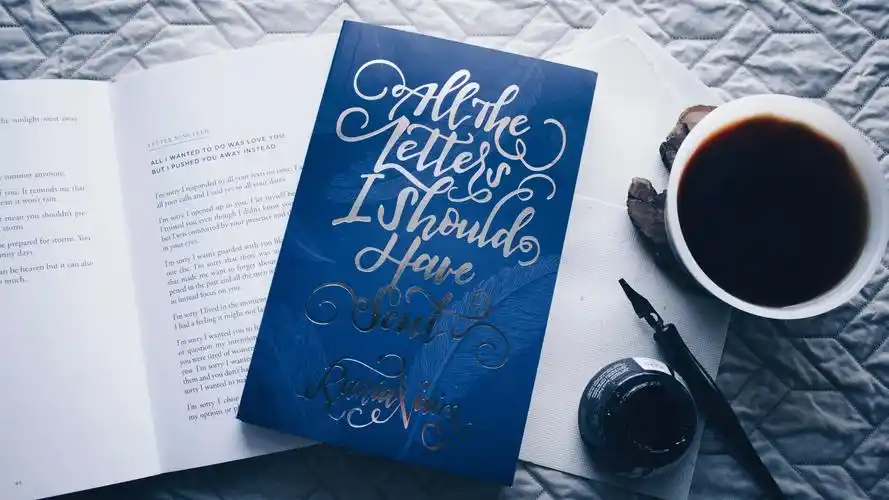 the sunlight went away
summer anymore.
you. It reminds me that
ean it won't rain.
mean you shouldn't pre-
storm.
be prepared for storms. You
ny days.
an be heaven but it can also
much.
LETTER NINETEEN
ALL I WANTED TO DO WAS LOVE YOU
BUT I PUSHED YOU AWAY INSTEAD
I'm sorry I responded to all your texts on time. I
all your calls and I said yes to all your dates.
I'm sorry I opened up to you. I let myself be
I trusted you even though I didn't know you
but I was comforted by your presence and the
in your eyes.
I'm sorry I wasn't guarded with you like
one else. I'm sorry that there was
that made me want to forget about
pened in the past and all the men
to instead focus on you.
I'm sorry I lived in the moment
I had a feeling it might not la
I'm sorry I wanted you to
or question my intention
you were tired of
you. I'm sorry I wanted
them and you didn't ha
sorry I wanted to ma
I'm sorry I chose
my options or p
All The
Letters
I Should
Have
Sent
Rania Naim